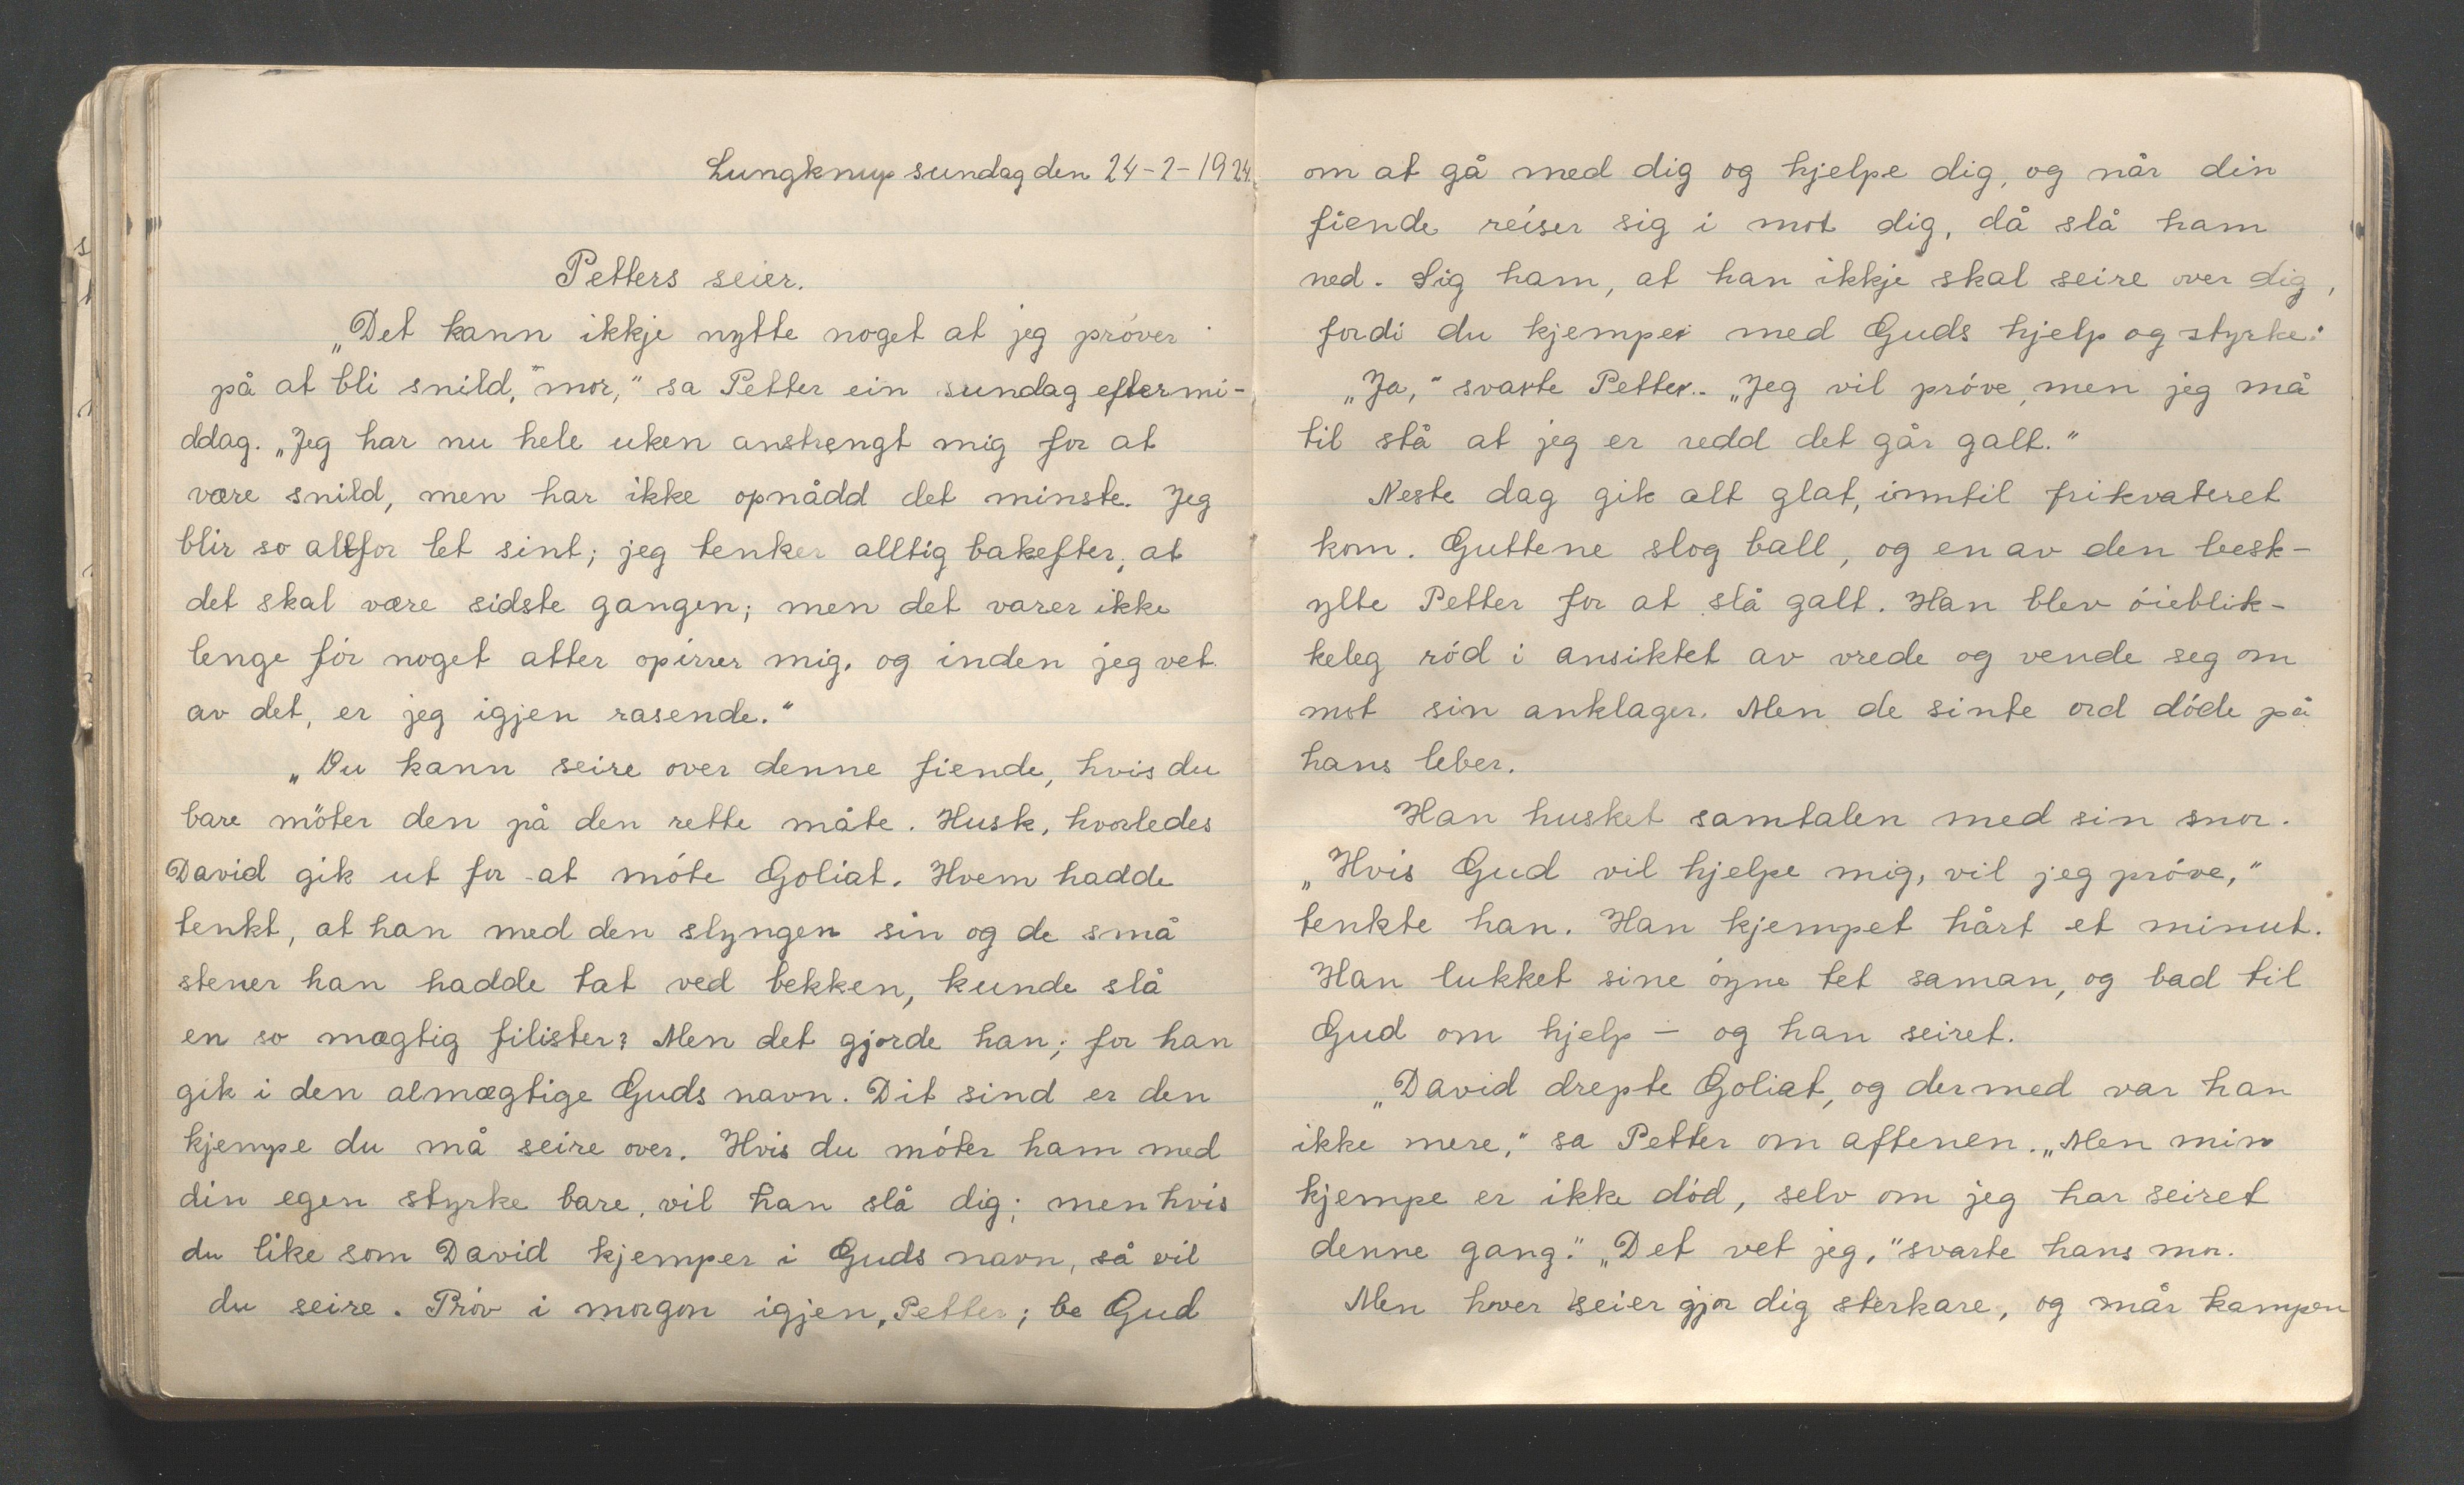 Lungknup sundag den 24-2-1924.
Petters seier.
„Det kann ikkje nytte noget at jeg próver
på at bli snild," mor," sa Petter ein sundag eftermi-
ddag. „Jeg har nu hele uken anstrengt mig for at
være snild, men har ikke opnådd det minste. Jeg
blir so altfor let sint; jeg tenker alltig bakefter, at
det skal være sidste gangen; men det varer ikke
lenge fór noget atter opirrer mig, og inden jeg vet
av det, er jeg igjen rasende."
„Du kann seire over denne fiende, hvis du
bare möter den på den rette måte. Husk, hvorledes
David gik ut for at móte Goliat. Hvem hadde
tenkt, at han med den slyngen sin og de små
stener han hadde tat ved bekken, kunde slå
en so mægtig filister? Men det gjorde han; for han
gik i den almægtige Guds navn. Dit sind er den
kjempe du må seire over. Hvis du móter ham med
din egen styrke bare, vil han slå dig; men hvis
du like som David kjemper i Guds navn, så vil
du seire. Próv i morgon igjen, Petter; be Gud
om at gå med dig og hjelpe dig, og når din
fiende reiser sig i mot dig, då slå ham
ned. Sig ham, at han ikkje skal seire over dig,
fordi du kjemper med Guds hjelp og styrke."
„Ja," svarte Petter. „Jeg vil próve, men jeg må
til stå at jeg er redd det går galt."
Neste dag gik alt glat, inntil frikvateret
kom. Guttene slog ball, og en av den besk-
ylte Petter for at slå galt. Han blev óieblik-
keleg ród i ansiktet av vrede og vende seg om
mot sin anklager. Men de sinte ord dóde på
hans leber.
Han husket samtalen med sin mor.
„Hvis Gud vil hjelpe mig, vil jeg próve,"
tenkte han. Han kjempet hårt et minut.
Han lukket sine óyne tet saman, og bad til
Gud om hjelp – og han seiret.
„David drepte Goliat, og dermed var han
ikke mere," sa Petter om aftenen. „Men min
kjempe er ikke dód, selv om jeg har seiret
denne gang." „Det vet jeg," svarte hans mor.
Men hver seier gjór dig sterkare, og når kampen